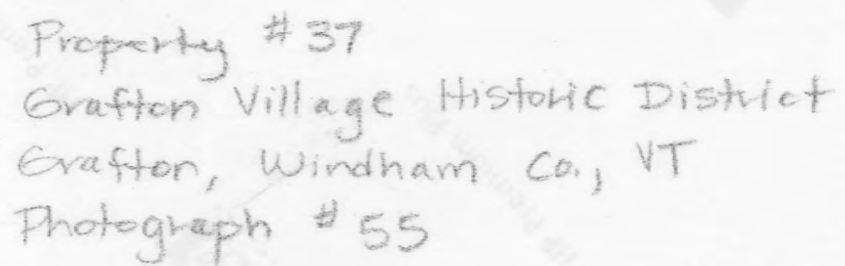 Property #37
Grafton Village Historic District
Grafton, Windham Co., VT
Photograph #55